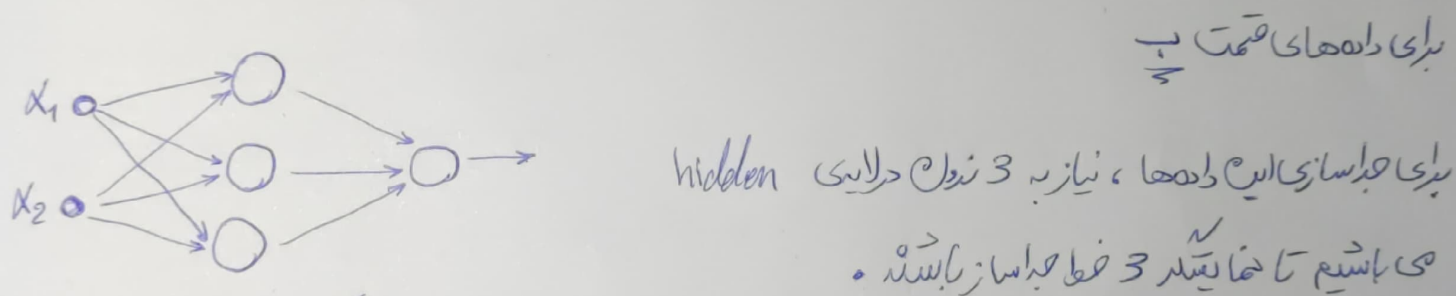 برای داده‌های قسمت ب
برای جداسازی این داده‌ها ، نیاز به 3 نرون در لایه‌ی hidden
می باشیم تا نمایشگر 3 خط جداساز باشند .
x1
x2